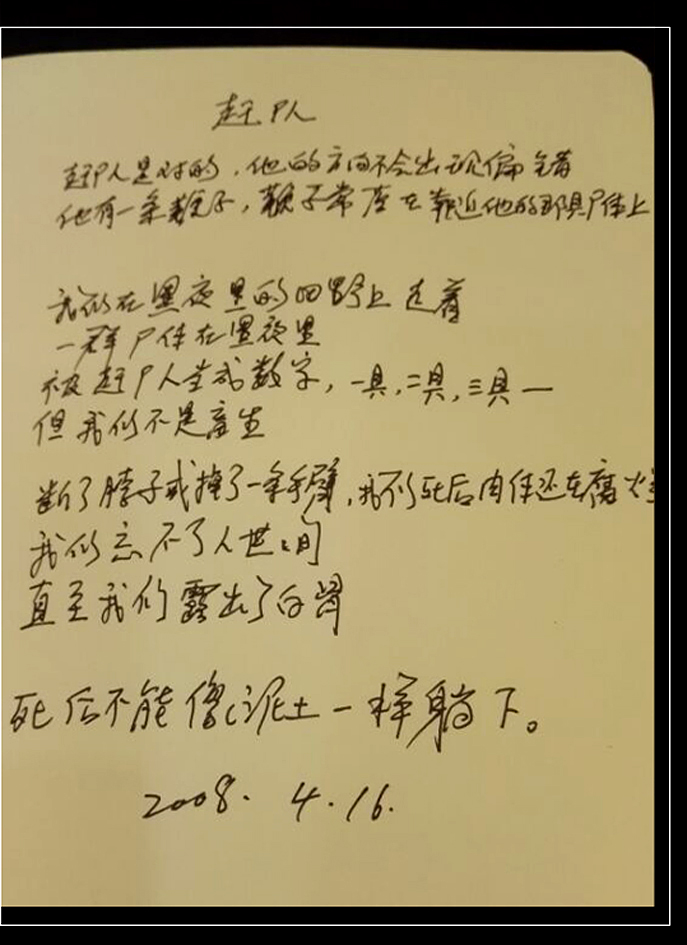 赶尸人
赶尸人是对的，他的方向不会出现偏错
他有一条鞭子，鞭子常落在靠近他的那具尸体上
我们在黑夜里的田野上走着
一群尸体在黑夜里
被赶尸人当成数字，一具，二具，三具—
但我们不是畜生
断了脖子或掉了一条手臂，我们死后肉体还在腐烂
我们忘不了人世间
直至我们露出了白骨
死后不能像泥土一样躺下。
2008. 4.16.